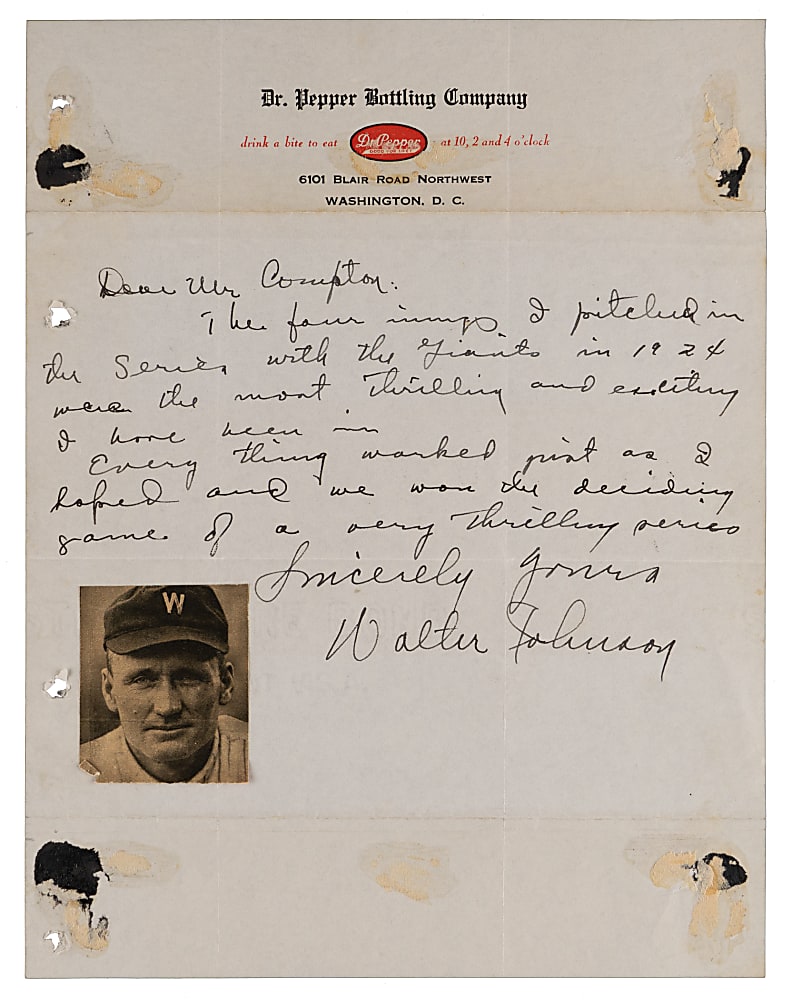 Dr. Pepper Bottling Company
drink a bite to eat Dr. Pepper at 10, 2 and 4 o'clock
GOOD FOR LIFE
6101 BLAIR ROAD NORTHWEST
WASHINGTON, D. C.
Dear Mr Compton:
The four innings I pitched in
the Series with the Giants in 1924
were the most thrilling and exciting
I have been in
Every thing worked just as I
hoped and we won the deciding
game of a very thrilling series
Sincerely yours
Walter Johnson
W